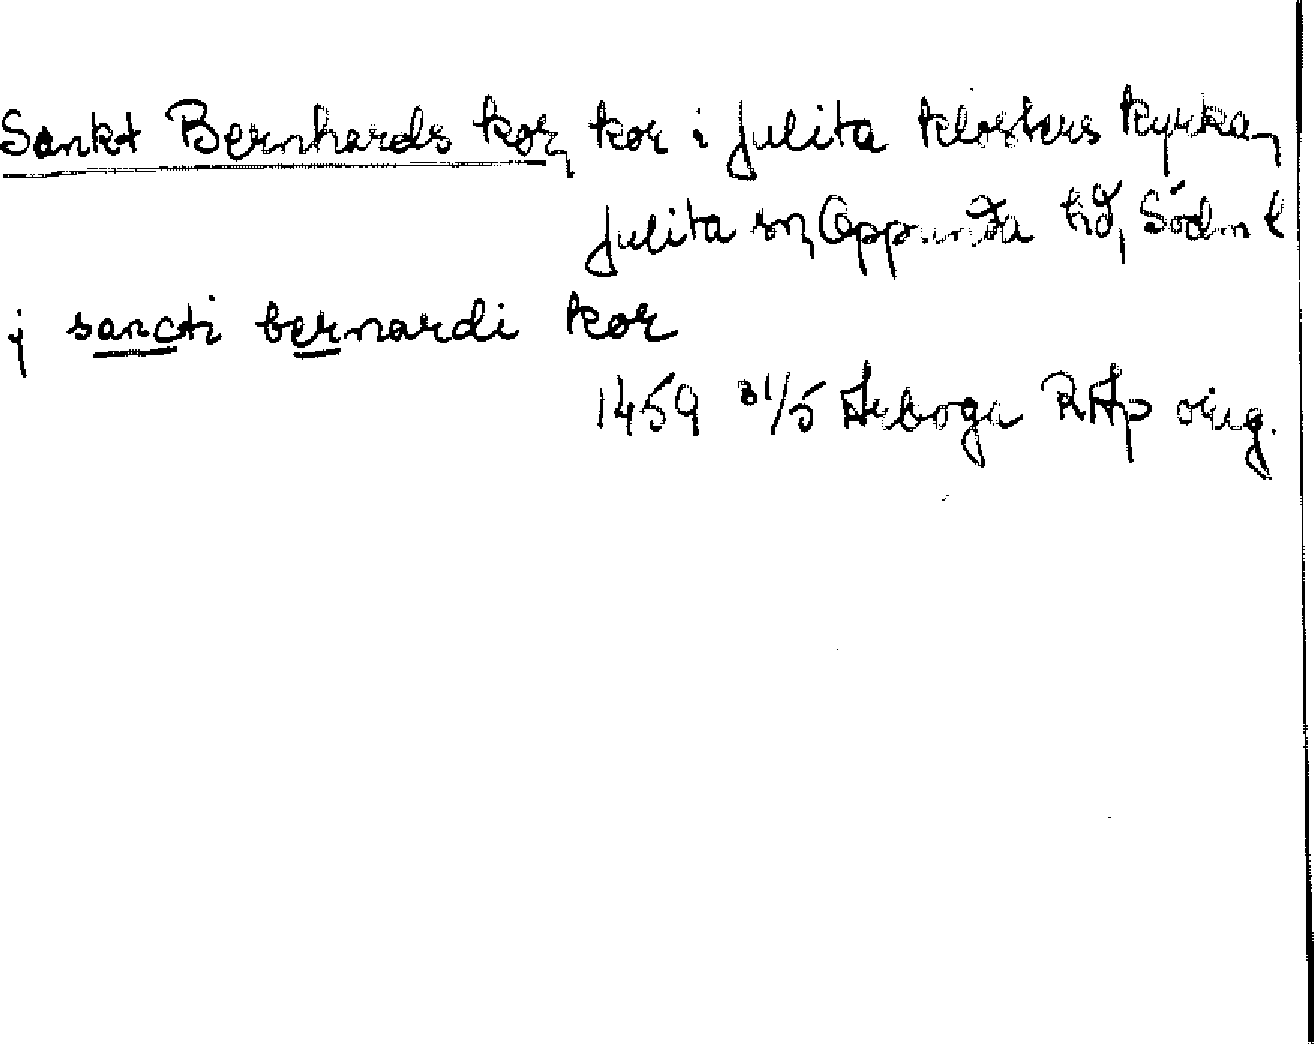 Sankt Bernhards kor, kor i Julita klosters kyrka,
Julita sn, Oppunda hd, Södm l
j sancti bernardi kor
1459 31/5 Arboga RAp orig.